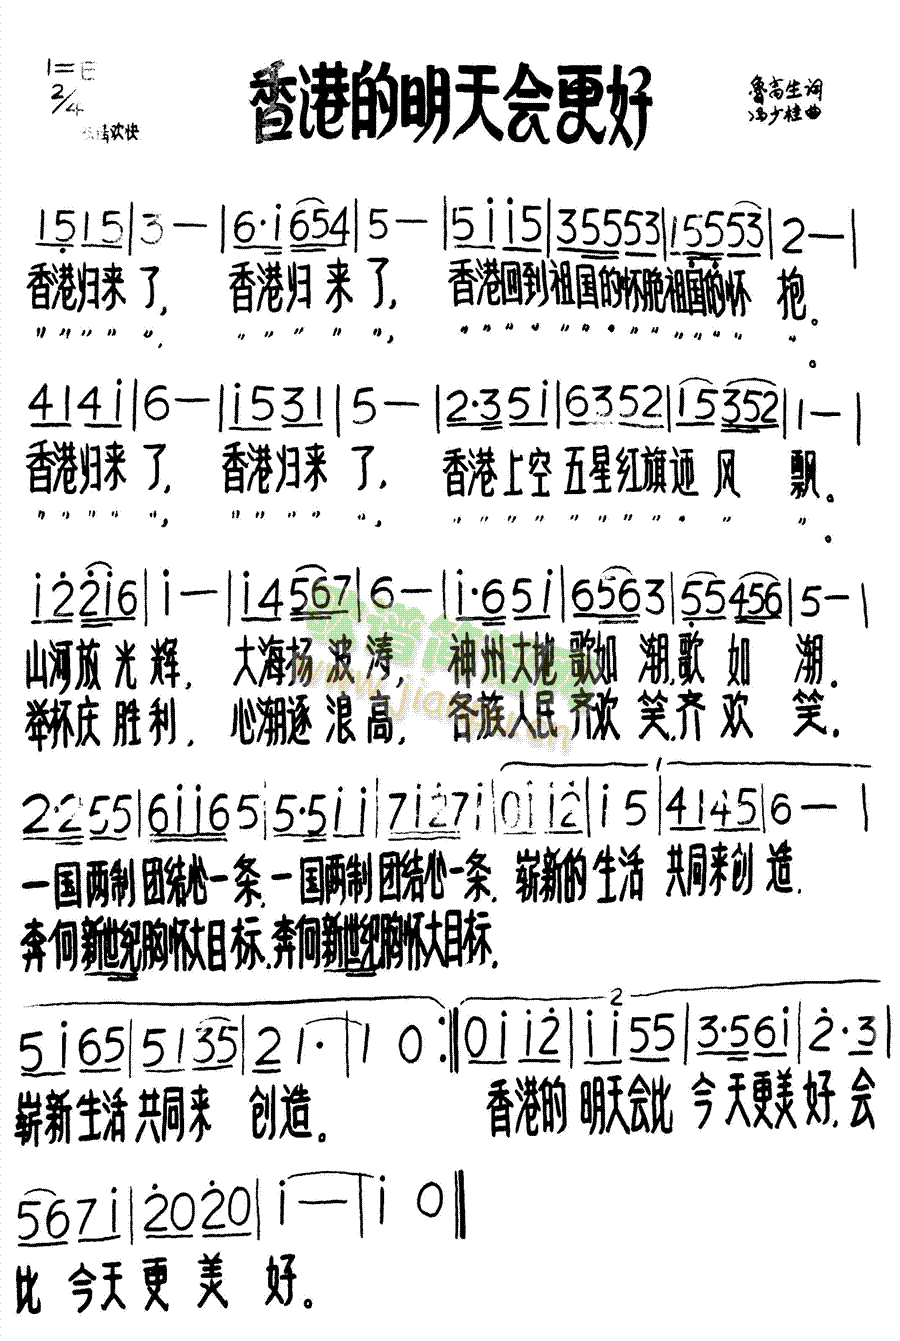 香港的明天会更好
1=E
2/4
鲁高生词
冯少桂曲
欢快
1 5 1 5 | 3 — | 6·i 6 5 4 | 5 — | 5 i i 5 | 3 5 5 5 3 | 1 5 5 5 3 | 2 — |
香港归来了, 香港归来了, 香港回到祖国的怀抱祖国的怀抱。
〃〃〃〃〃, 〃〃〃〃〃, 〃〃〃〃〃〃〃〃〃〃〃〃。
4 1 4 i | 6 — | i 5 3 1 | 5 — | 2·3 5 i | 6 3 5 2 | 1 5 3 5 2 | 1 — |
香港归来了, 香港归来了, 香港上空五星红旗迎风飘。
〃〃〃〃〃, 〃〃〃〃〃, 〃〃〃〃〃〃〃〃〃〃〃。
i 2 2 i 6 | i — | i 4 5 6 7 | 6 — | i·6 5 i | 6 5 6 3 | 5 5 4 5 6 | 5 — |
山河放光辉, 大海扬波涛, 神州大地歌如潮,歌如潮.
举杯庆胜利, 心潮逐浪高, 各族人民齐欢笑.齐欢笑.
2·2 5 5 | 6 i i 6 5 | 5·5 i i | 7 i 2 7 i | 0 i i 2 | i 5 | 4 1 4 5 | 6 — |
1
一国两制团结心一条.一国两制团结心一条. 崭新的生活共同来创造.
奔向新世纪胸怀大目标.奔向新世纪胸怀大目标.
2
5 i 6 5 | 5 1 3 5 | 2 1· | 1 0 :‖ 0 i i 2 | i i 5 5 | 3·5 6 i | 2·3 |
崭新生活共同来创造。 香港的明天会比今天更美好.会
5 6 7 i | 2 0 2 0 | i — | i 0 ‖
比今天更美好。